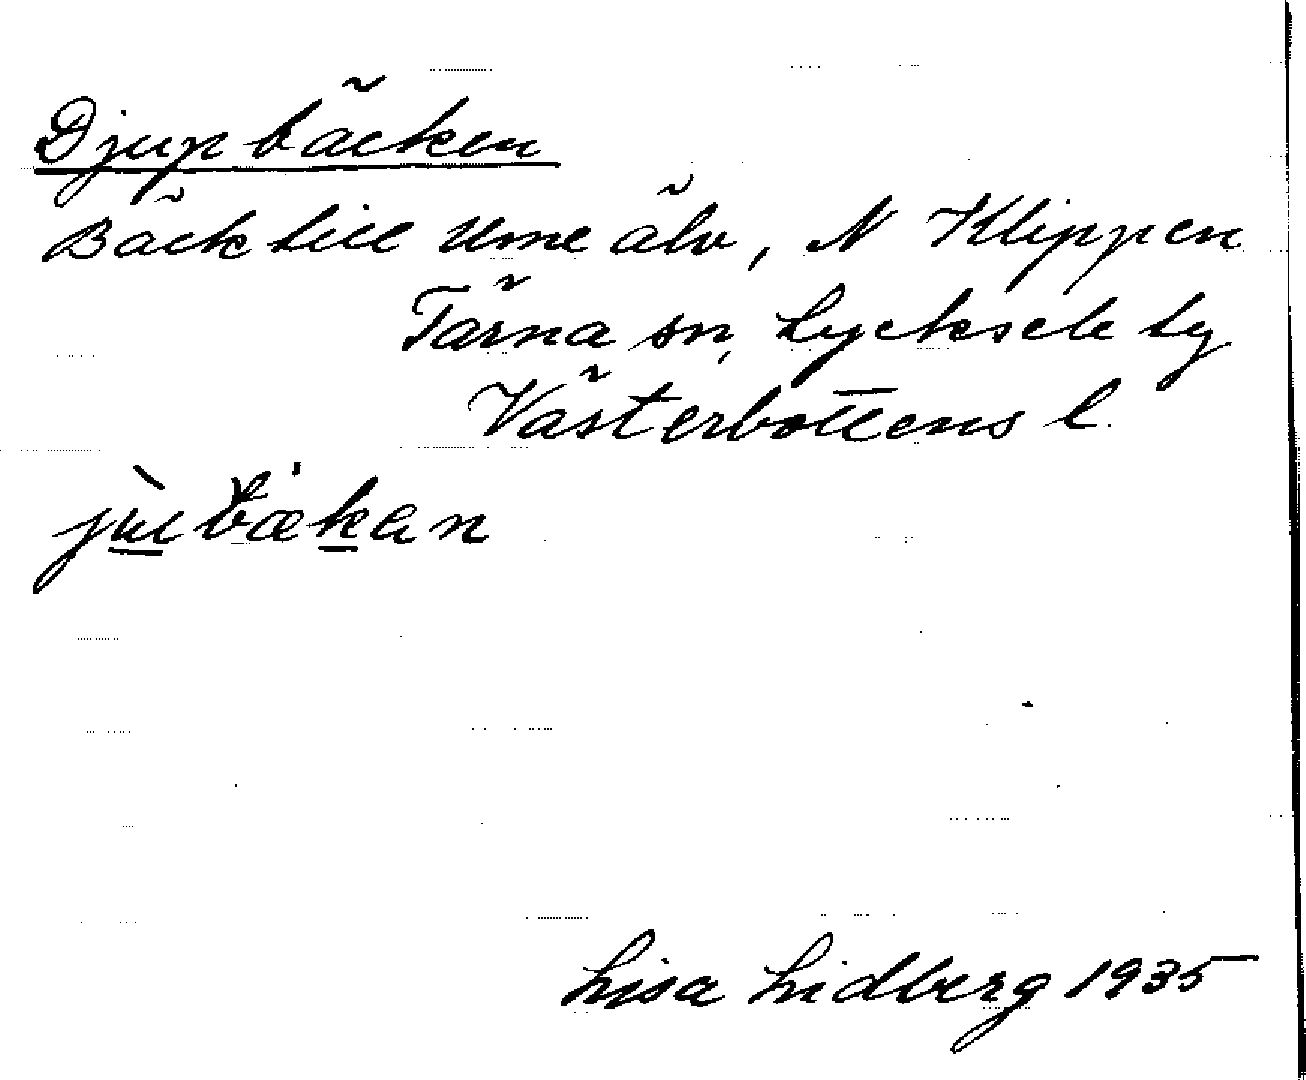 Djupbäcken
Bäck till Ume älv, N Klippen
Tärna sn, Lycksele ly
Västerbottens l.
Lisa Lidberg 1935